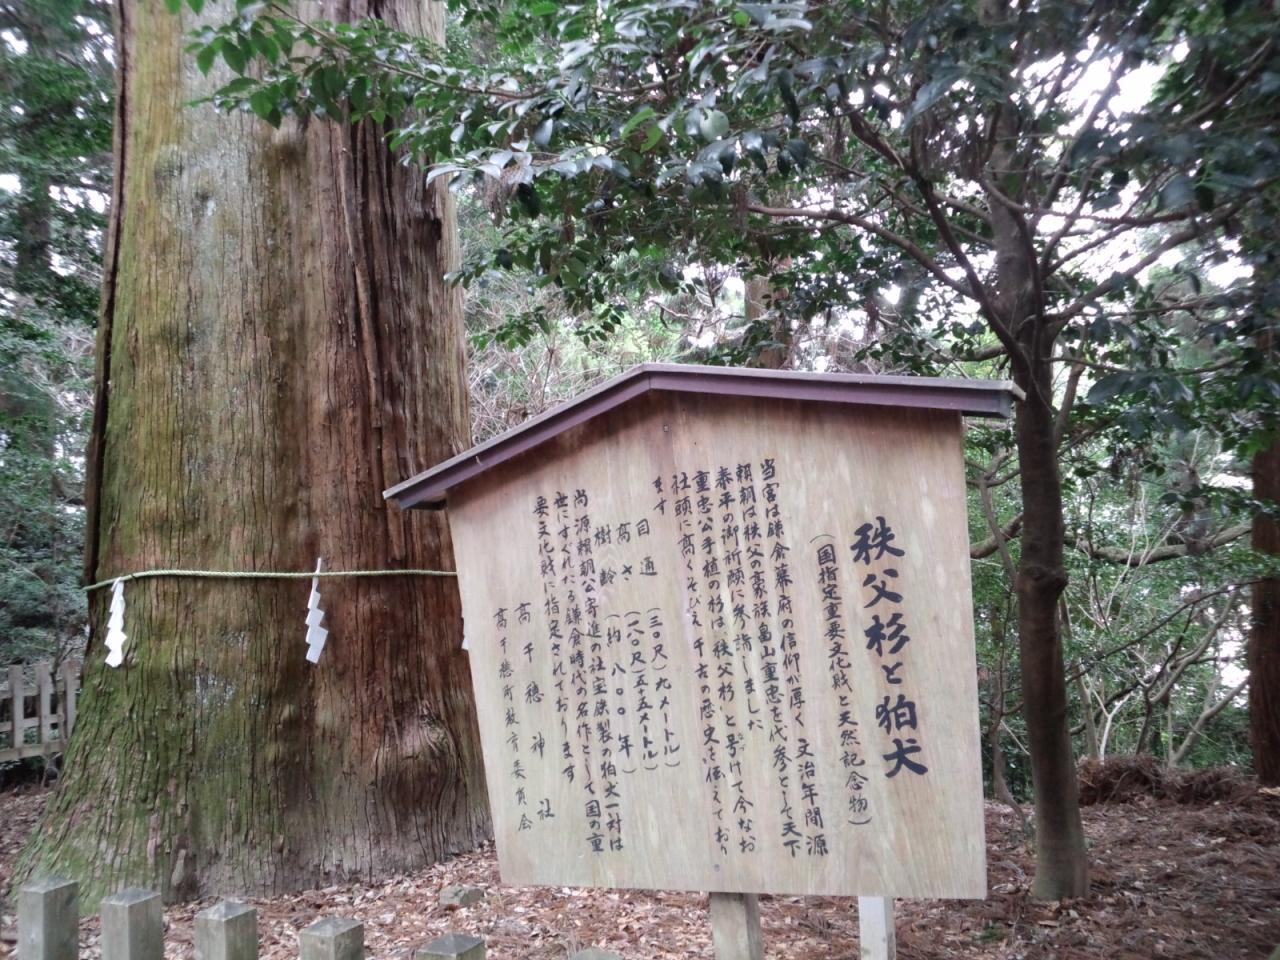 秩父杉と狛犬
（国指定重要文化財と天然記念物）
当宮は鎌倉幕府の信仰が厚く文治年間源
頼朝は秩父の豪族畠山重忠を代参として天下
泰平の御祈願に参詣しました
重忠公手植の杉は、秩父杉、と号づけて今なお
社頭に高くそびえ千古の歴史を伝えており
ます
目通（三〇尺）九メートル）
高さ（一八〇尺）五十五メートル）
樹齢（約八〇〇年）
尚源頼朝公寄進の社宝鉄製の狛犬一対は
世にすぐれたる鎌倉時代の名作として国の重
要文化財に指定されております
高千穂神社
高千穂町教育委員会